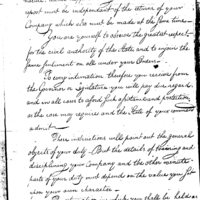 must be independent of the return of your
Company which also must be made at the same time.
You are yourself to observe the greatest respect
for the civil authority of the State and to enjoin the
same sentiment on all under your Orders.
To any intimation therefore you receive from
the Governor or Legislature you will pay due regard
and in all cases to afford such protection
as the case may require and the State of your
admit.
These instructions will point out the general
objects of your duty. But the details of
disciplining your Company and the other minute
parts of your duty must depend on the value you set
upon your own character.
you shall be held